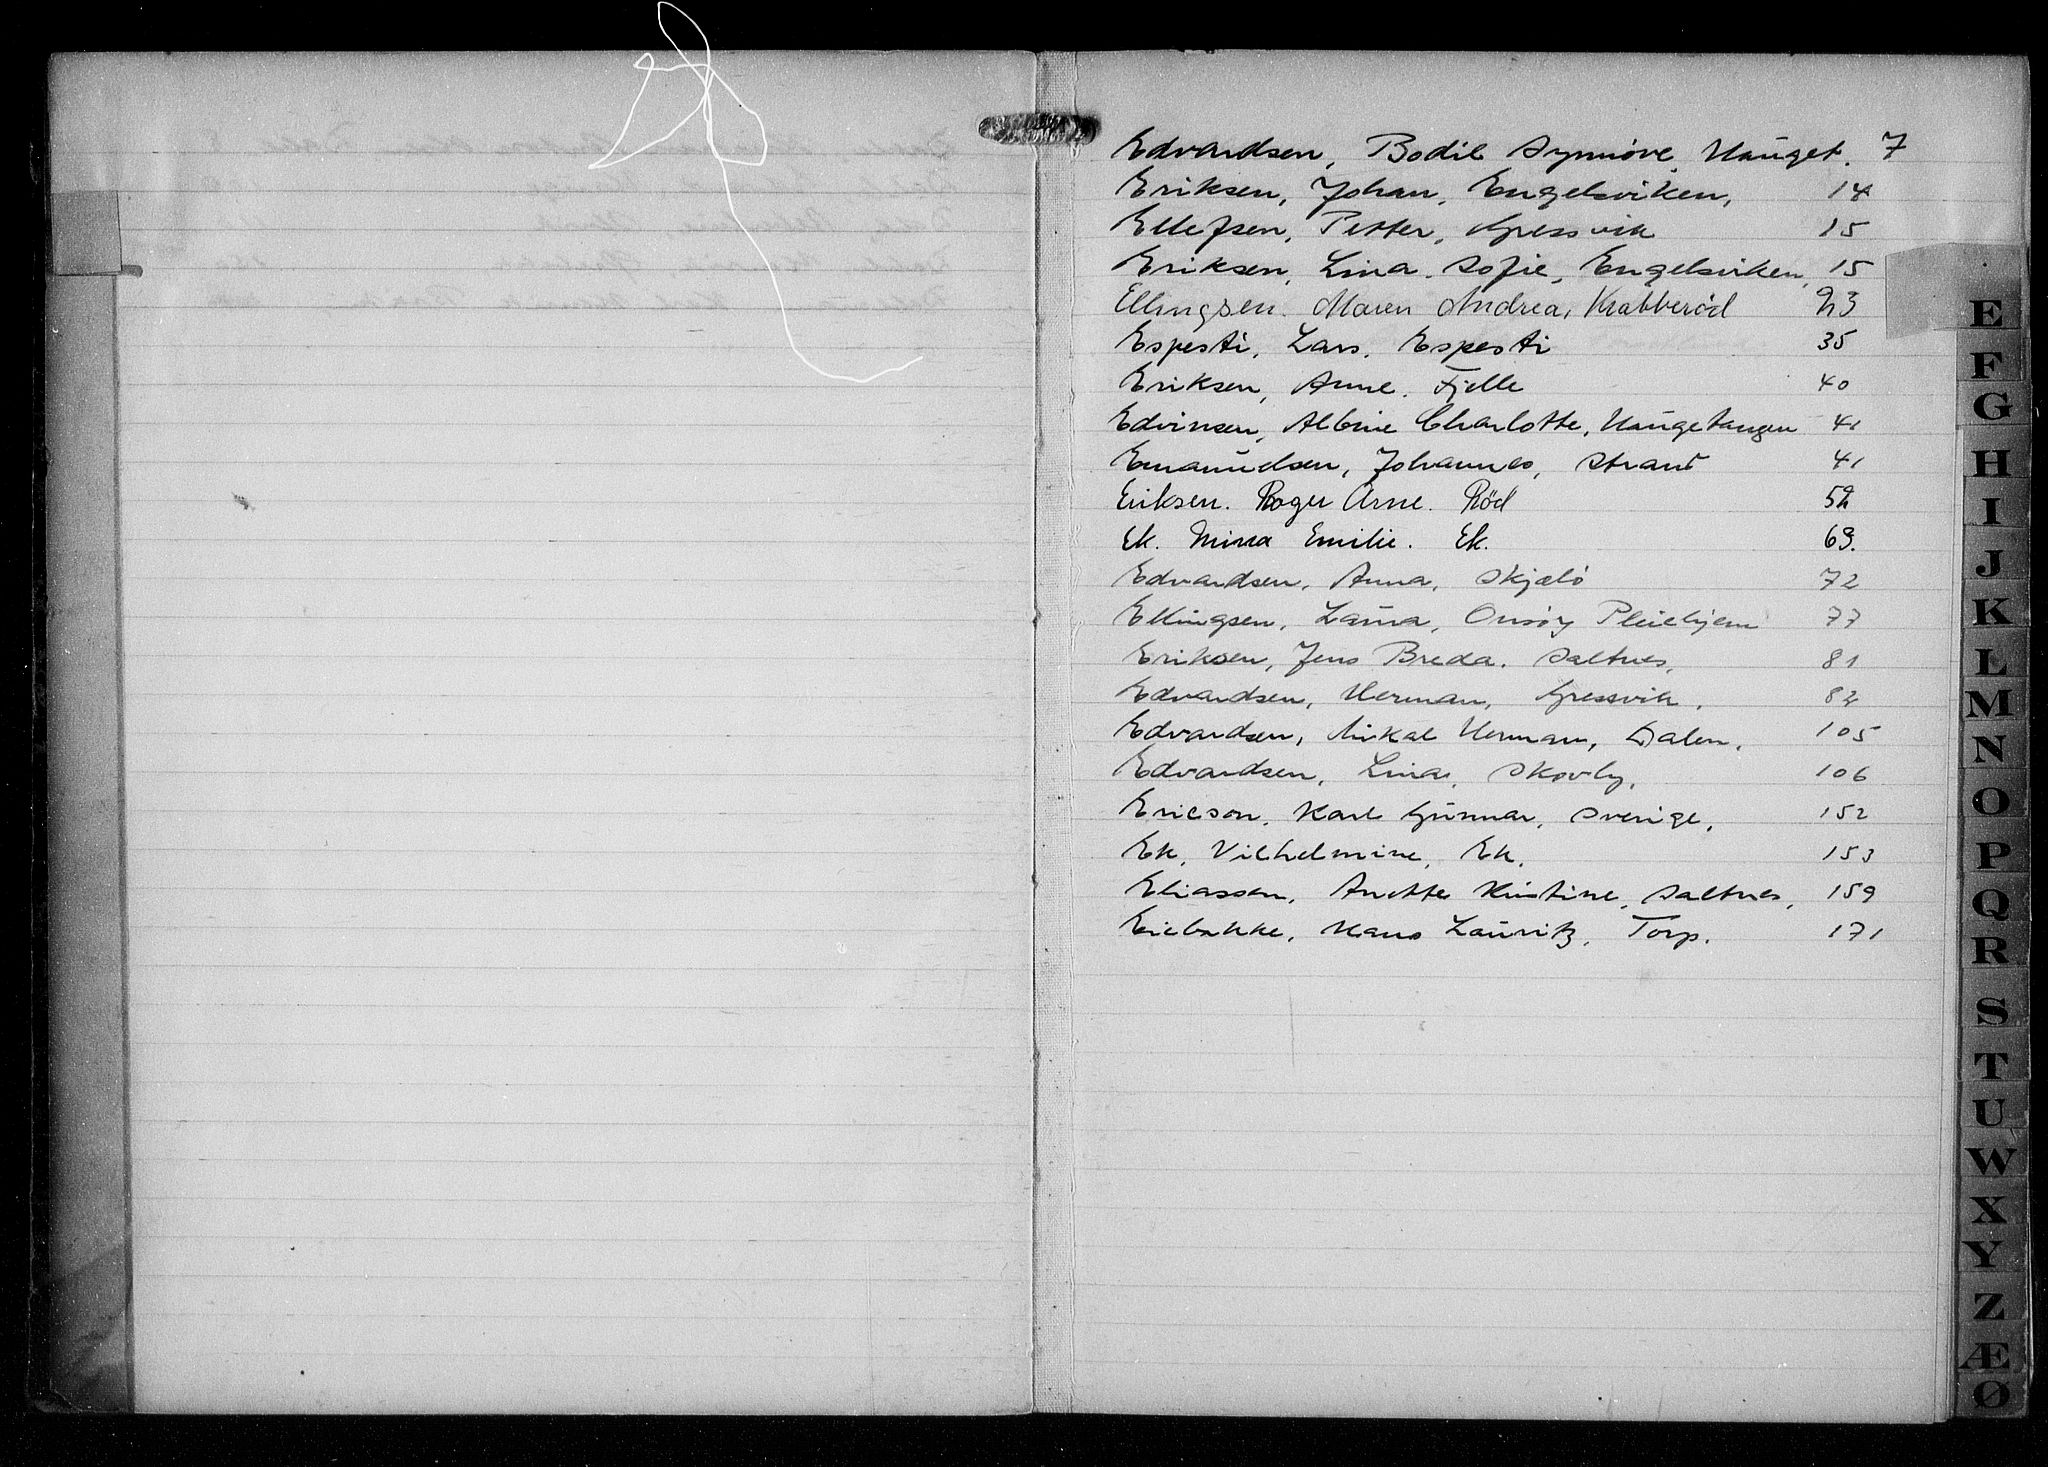 Edvardsen, Bodil Synnöve, Hauget. 7
Eriksen, Johan, Engelsviken, 14
Ellefsen, Petter, Gressvik 15
Eriksen, Lina Sofie, Engelsviken, 15
Ellingsen. Maren Andrea, Krabberød 23
Espesti, Lars. Espesti 35
Eriksen, Anne. Fjelle 40
Edvinsen, Albine Charlotte, Haugetangen 41
Emanuelsen, Johannes, Strand 41
Eriksen. Roger Arne. Röd 52
Ek. Minna Emilie. Ek. 69.
Edvardsen, Anna, Skjælö 72
Ellingsen, Laura, Onsøy Pleiehjem 77
Eriksen, Jens Breda. Saltnes, 81
Edvardsen, Herman, Gressvik, 82
Edvardsen, Mikal Herman, Dalen, 105
Edvardsen, Lina, Skovly, 106
Ericson, Karl Gunnar, Sverige, 152
Ek, Vilhelmine, Ek, 153
Eliassen, Anette Kristine, Saltnes, 159
Eiebakke, Hans Lauritz, Torp. 171
E
F
G
H
I
J
K
L
M
N
O
P
Q
R
S
T
U
W
X
Y
Z
Æ
Ø